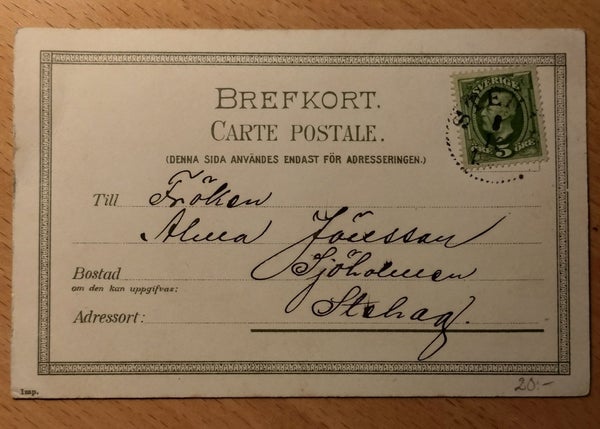 BREFKORT.
CARTE POSTALE.
(DENNA SIDA ANVÄNDES ENDAST FÖR ADRESSERINGEN.)
SVERIGE
5
Till Fröken
Alma Jönsson
Bostad Sjöholmen
om den kan uppgifvas:
Adressort: Stehag.
Imp.
20:-